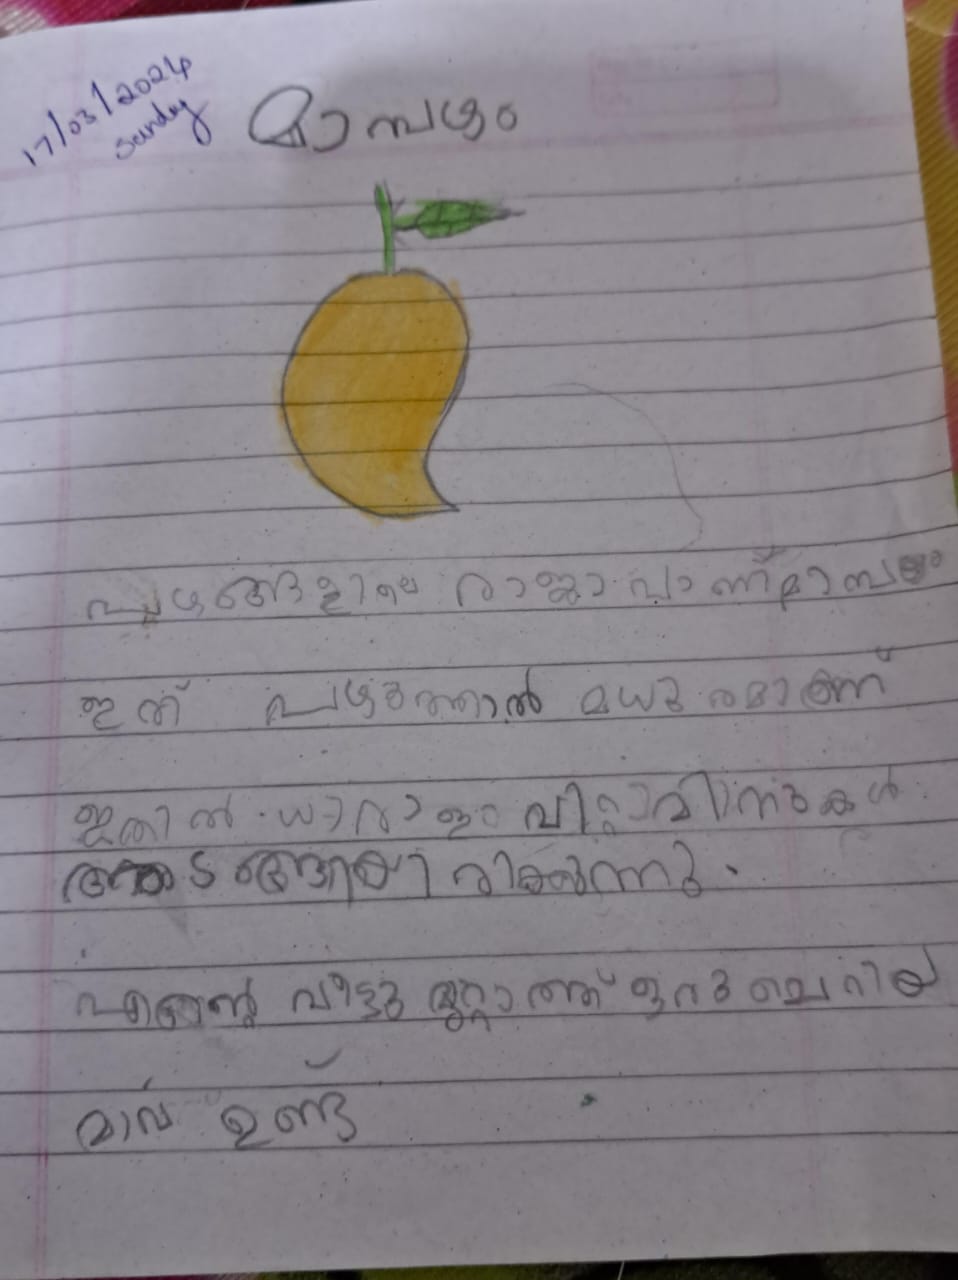 17/03/2024
Sunday
മാമ്പഴം
പഴങ്ങളിലെ രാജാവാണ് മാമ്പഴം
ഇത് പഴുത്താൽ മധുരമാണ്
ഇതിൽ ധാരാളം വിറ്റാമിനുകൾ
അടങ്ങിയിരിക്കുന്നു.
എന്റെ വീട്ടുമുറ്റത്ത് ഒരു ചെറിയ
മാവ് ഉണ്ട്